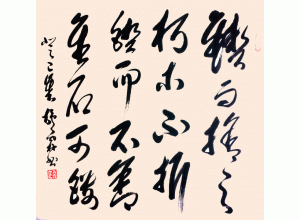 鍥而捨之
朽木不折
鍥而不舍
金石可鏤